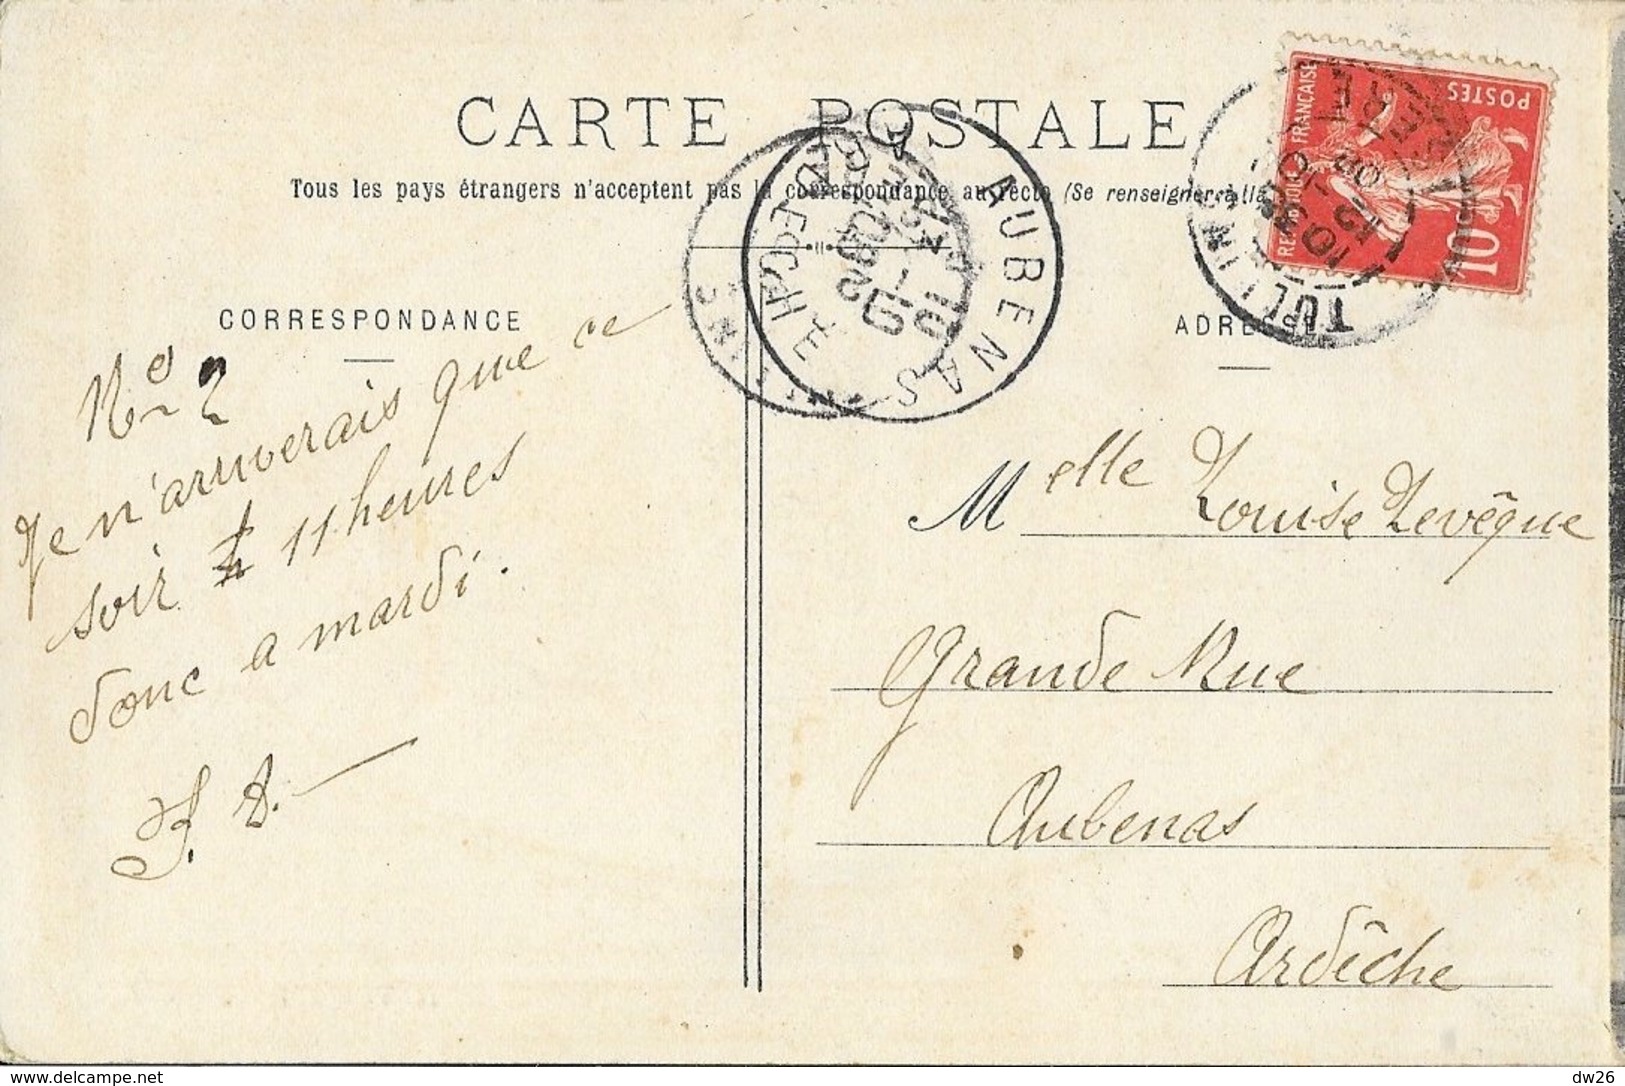 CARTE POSTALE
Tous les pays étrangers n'acceptent pas la correspondance au recto (Se renseigner à la
REPUBLIQUE FRANÇAISE
POSTES
10
TULLINS
ISERE
AUBENAS
ARDECHE
CORRESPONDANCE
ADRESSE
No 2
Je n'arriverais que ce
soir 11 heures
donc a mardi.
Melle Louise Levêque
Grande Rue
Aubenas
Ardêche
http://www.delcampe.net
dw26